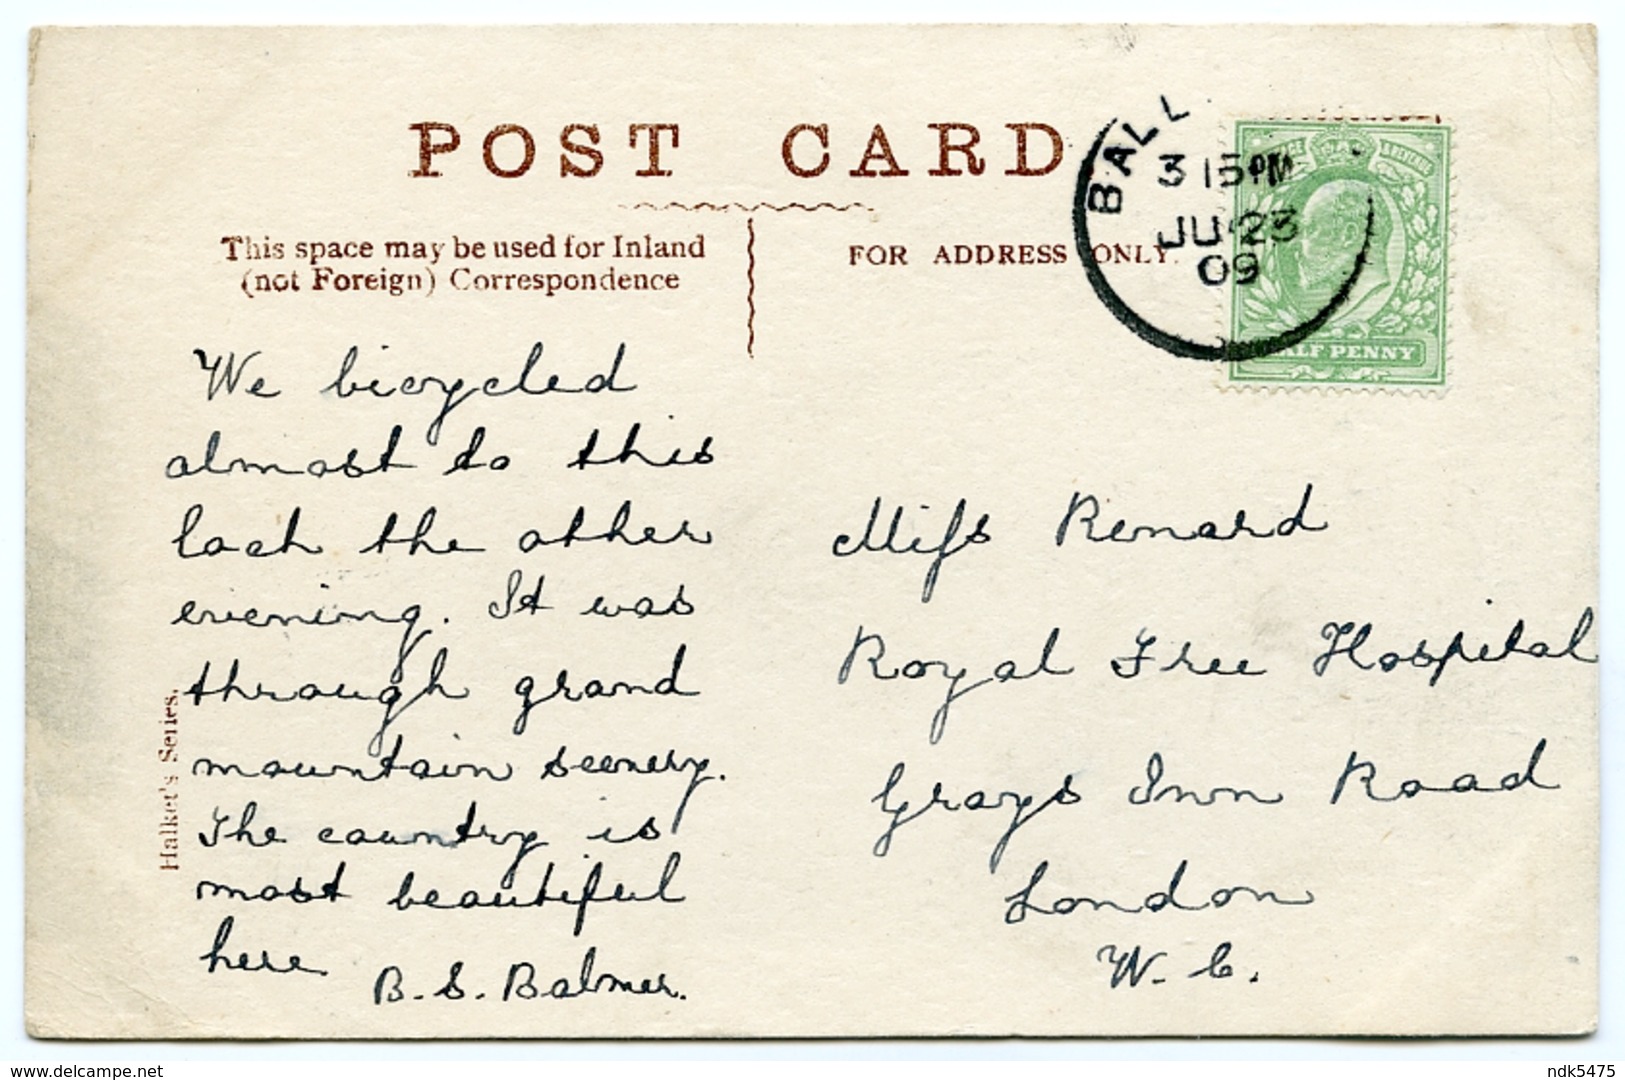 POST CARD
This space may be used for Inland
(not Foreign) Correspondence
FOR ADDRESS ONLY.
BALL
3 15 PM
JU 23
09
HALF PENNY
We bicycled
almost to this
loch the other
evening. It was
through grand
mountain scenery.
The country is
most beautiful
here
B. S. Balmer.
Halket's Series.
Miss Renard
Royal Free Hospital
Grays Inn Road
London
W. C.
delcampe.net
ndk5475